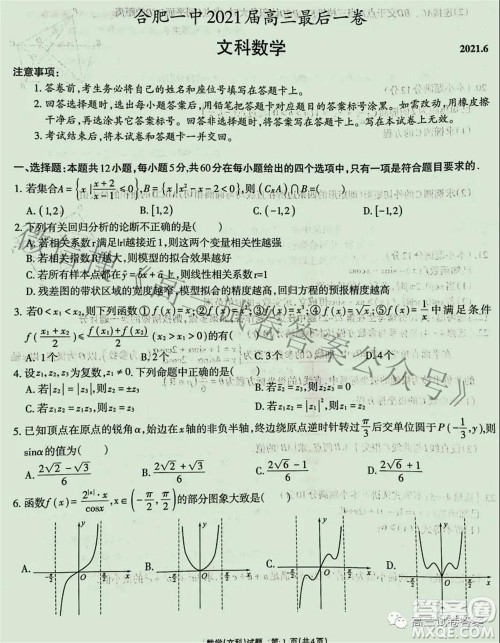 合肥一中2021届高三最后一卷
文科数学
2021.6
注意事项：
1. 答卷前，考生务必将自己的姓名和座位号填写在答题卡上。
2. 回答选择题时，选出每小题答案后，用铅笔把答题卡对应题目的答案标号涂黑。如需改动，用橡皮擦
干净后，再选涂其它答案标号。回答非选择题时，将答案写在答题卡上。写在本试卷上无效。
3. 考试结束后，将本试卷和答题卡一并交回。
一、选择题：本题共12小题，每小题5分，共60分在每小题给出的四个选项中，只有一项是符合题目要求的．
1. 若集合A={x|(x+2)/(x-1)≤0}，B={x|x²-x-2<0}，则(C_R A)∩B=(　　)
A. (1,2)　B. [1,2)　C. (-1,2)　D. [-1,2)
2. 下列有关回归分析的论断不正确的是(　　)
A. 若相关系数r满足|r|越接近1，则这两个变量相关性越强
B. 若相关指数R²越大，则模型的拟合效果越好
C. 若所有样本点都在ŷ=b̂x+â上，则线性相关系数r=1
D. 残差图的带状区域的宽度越窄，模型拟合的精度越高，回归方程的预报精度越高
3. 若0<x₁<x₂，则下列函数①f(x)=x；②f(x)=x²；③f(x)=x³；④f(x)=√x；⑤f(x)=1/x 中满足条件
f((x₁+x₂)/2)≤(f(x₁)+f(x₂))/2 (x₂>x₁>0)的有(　　)
A. 1个　B. 2个　C. 3个　D. 4个
4. 设z₁,z₂,z₃为复数，z₁≠0．下列命题中正确的是(　　)
A. 若|z₂|=|z₃|，则z₂=±z₃　B. 若z₁z₂=z₁z₃，则z₂=z₃
5. 已知顶点在原点的锐角α，始边在x轴的非负半轴，终边绕原点逆时针转过π/3后交单位圆于P(-1/3,y)，则
sinα的值为(　　)
A. (2√2-√3)/6　B. (2√2+√3)/6　C. (2√6-1)/6　D. (2√6+1)/6
6. 函数f(x)=2^|x|·x/cosx，x∈(-π/2,π/2)的部分图象大致是(　　)
A.　B.　C.　D.
数学(文科)试题 第1页(共4页)
高三试卷答案